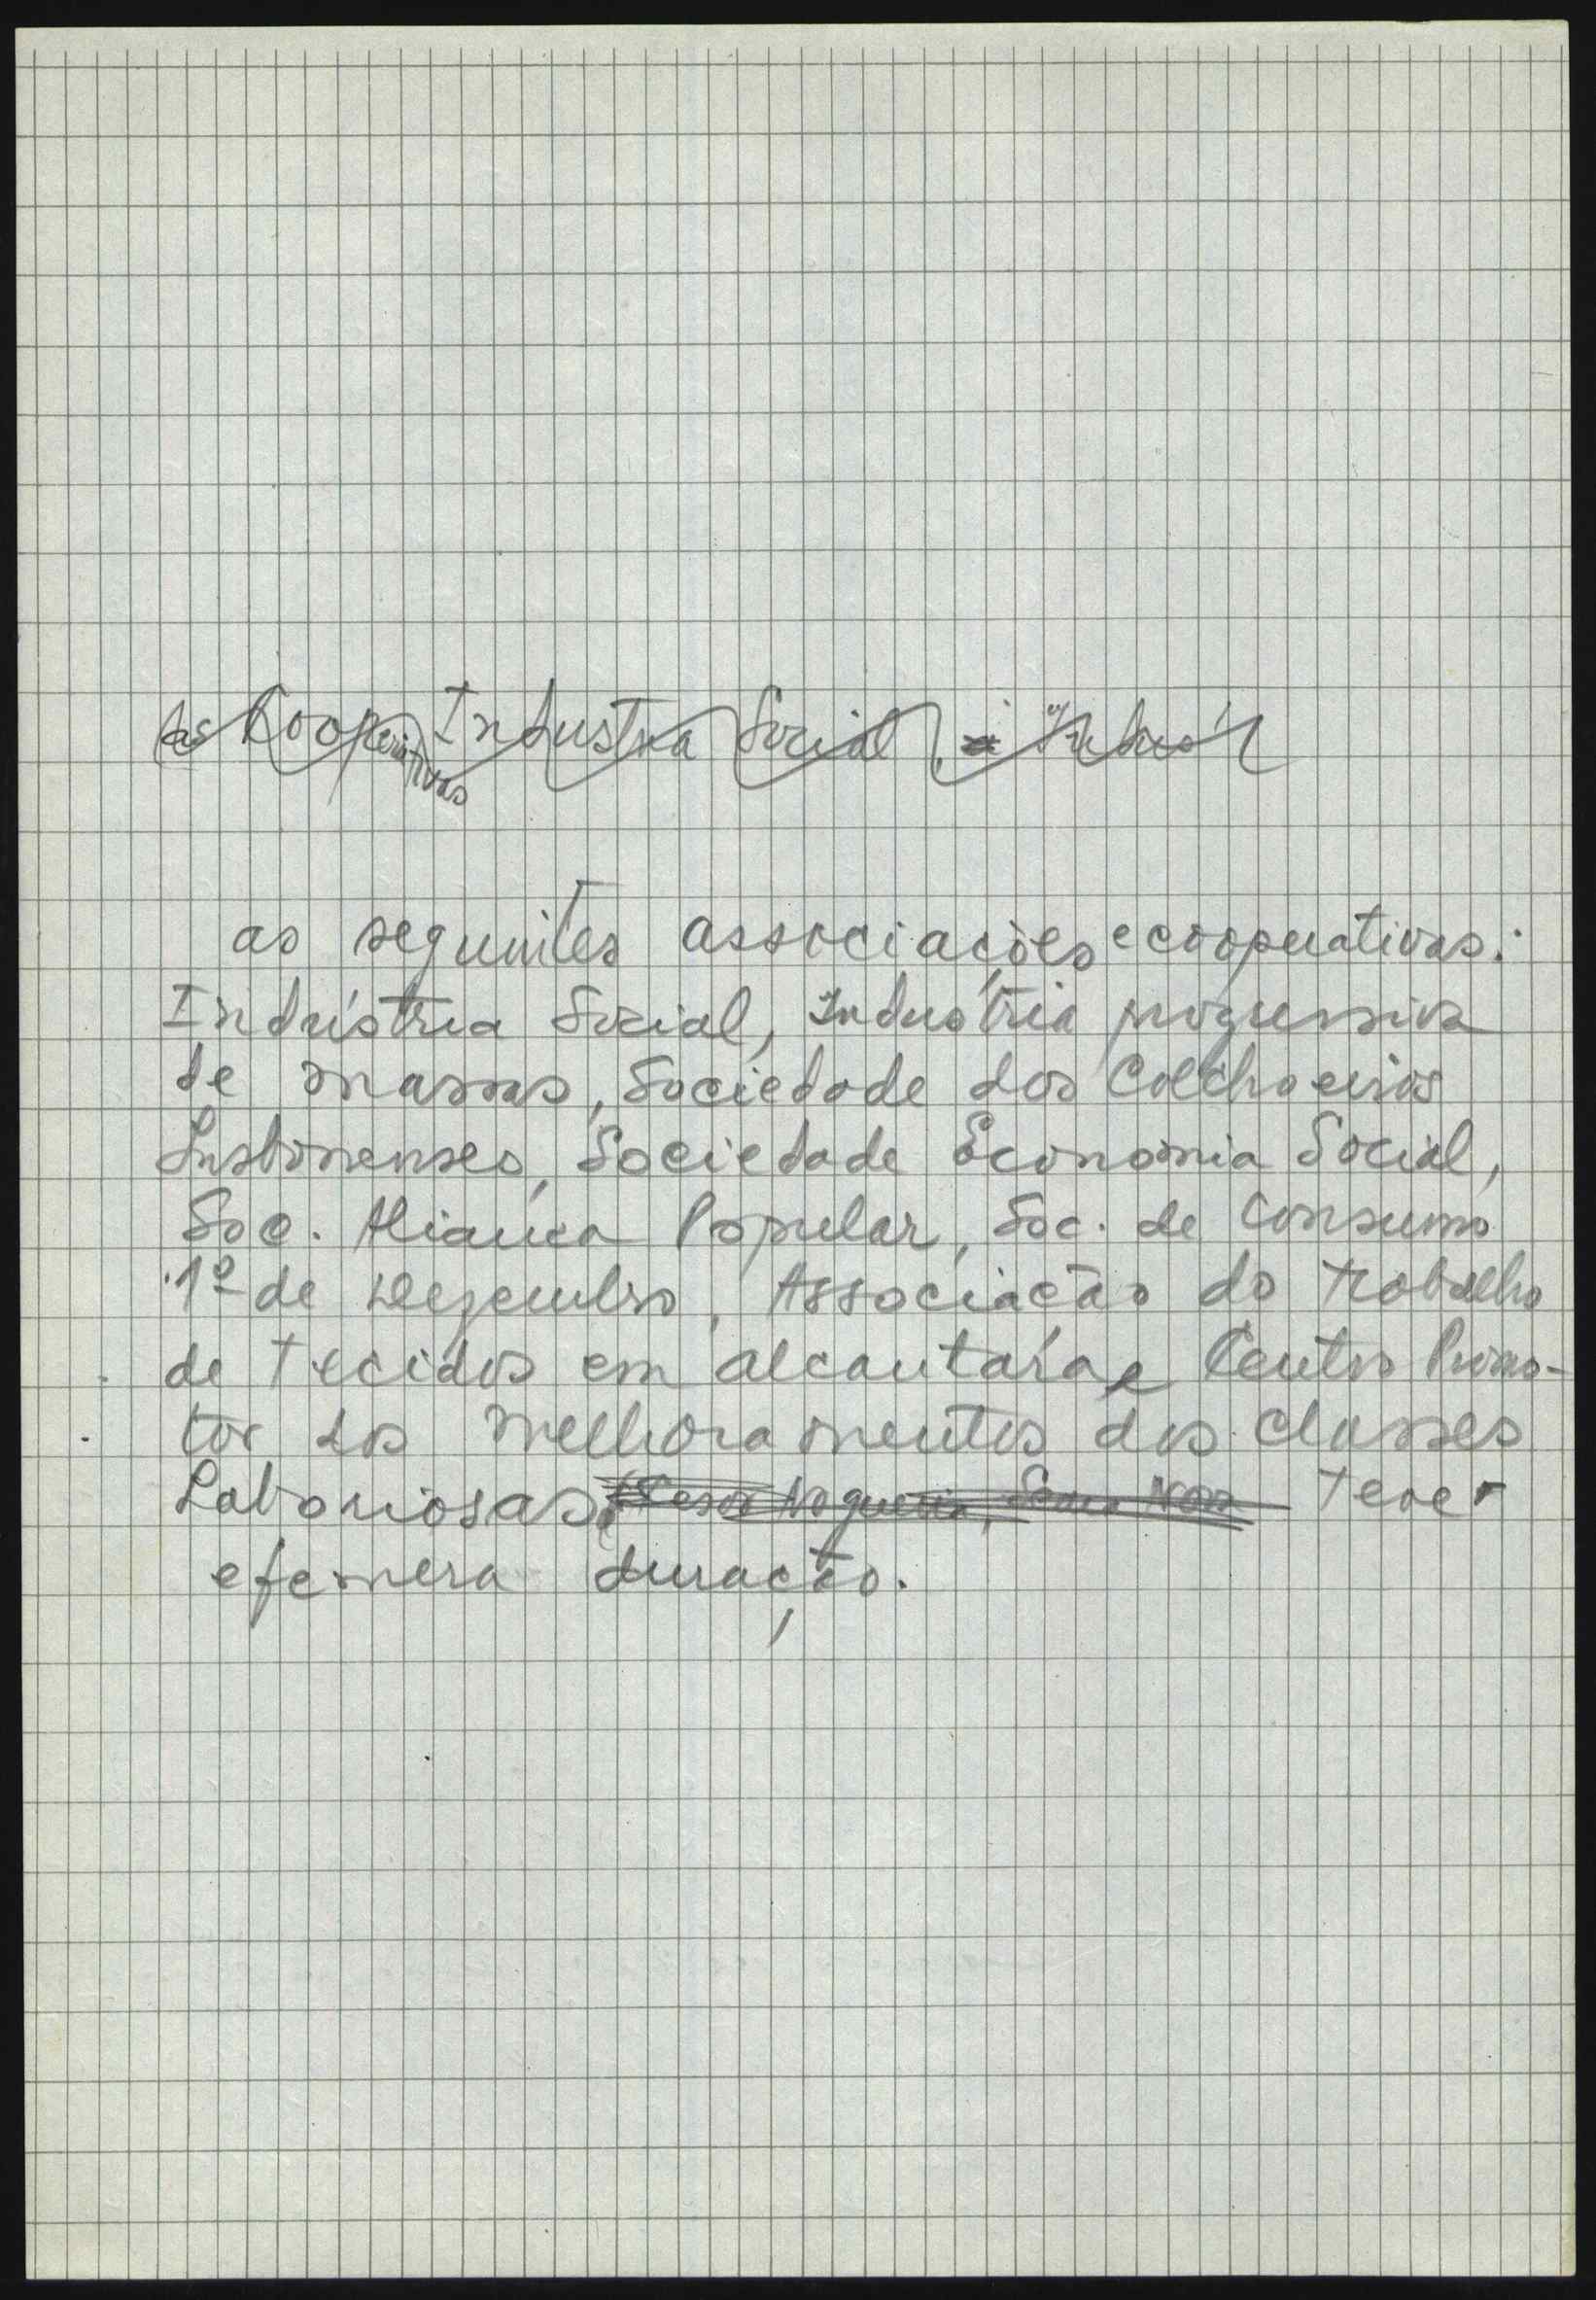 as Cooperativas Industria Social, a Indus
as seguintes associações e cooperativas:
Indústria Social, Industria progressiva
de massas, Sociedade dos Colchoeiros
Lisbonenses, Sociedade Economia Social,
Soc. Aliança Popular, Soc. de Consumo
1º de Dezembro, Associação do Trabalho
de Tecidos em Alcantara e Centro Promo-
tor dos Melhoramentos das Classes
Laboriosas. Nogueira, Teve
efemera duração.